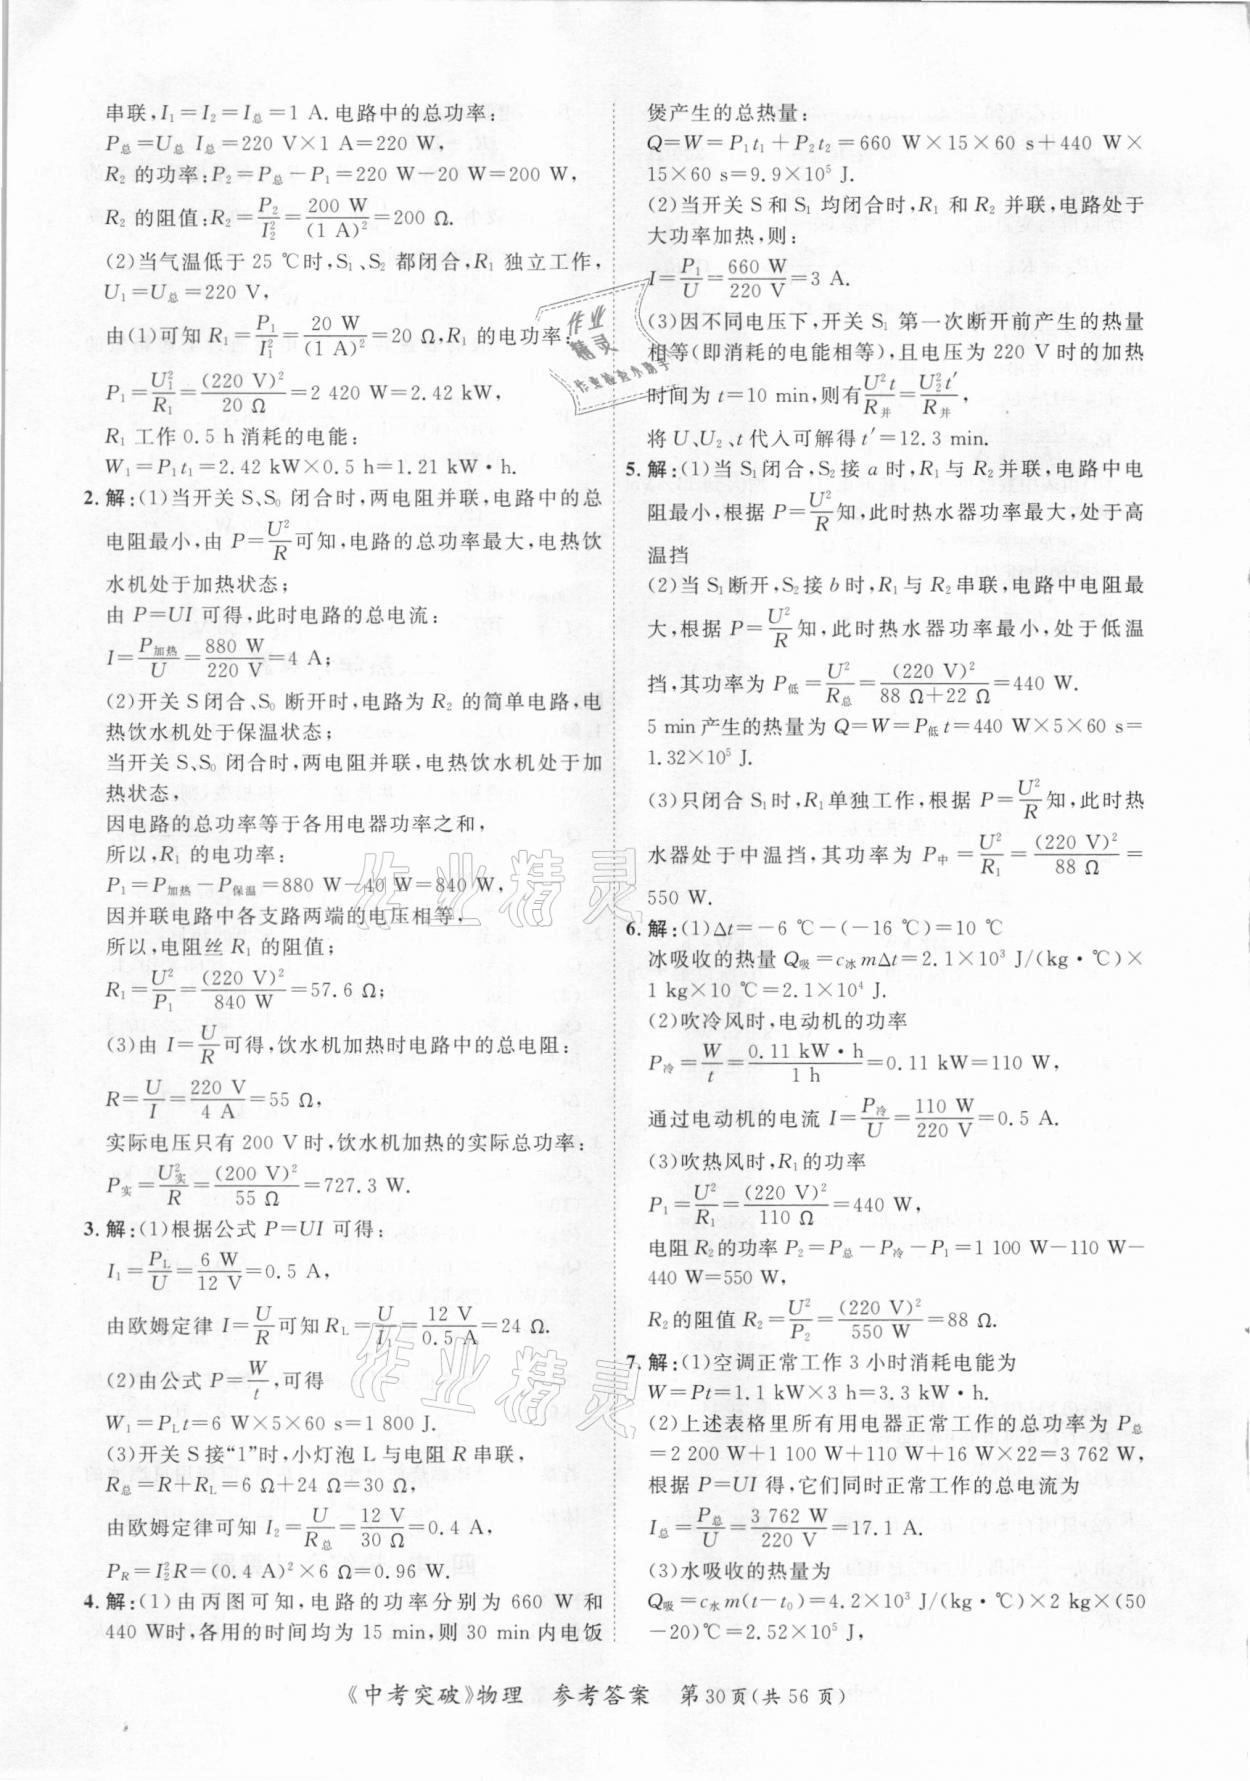 串联,I₁=I₂=I总=1 A.电路中的总功率:
P总=U总 I总=220 V×1 A=220 W,
R₂ 的功率:P₂=P总-P₁=220 W-20 W=200 W,
R₂ 的阻值:R₂=P₂/I₂²=200 W/(1 A)²=200 Ω.
(2)当气温低于 25 ℃时,S₁、S₂ 都闭合,R₁ 独立工作,
U₁=U总=220 V,
由(1)可知 R₁=P₁/I₁²=20 W/(1 A)²=20 Ω,R₁ 的电功率:
P₁=U₁²/R₁=(220 V)²/20 Ω=2 420 W=2.42 kW,
R₁ 工作 0.5 h 消耗的电能:
W₁=P₁t₁=2.42 kW×0.5 h=1.21 kW·h.
2. 解:(1)当开关 S、S₀ 闭合时,两电阻并联,电路中的总
电阻最小,由 P=U²/R可知,电路的总功率最大,电热饮
水机处于加热状态;
由 P=UI 可得,此时电路的总电流:
I=P加热/U=880 W/220 V=4 A;
(2)开关 S闭合、S₀ 断开时,电路为 R₂ 的简单电路,电
热饮水机处于保温状态;
当开关 S、S₀ 闭合时,两电阻并联,电热饮水机处于加
热状态,
因电路的总功率等于各用电器功率之和,
所以,R₁ 的电功率:
P₁=P加热-P保温=880 W-40 W=840 W,
因并联电路中各支路两端的电压相等,
所以,电阻丝 R₁ 的阻值:
R₁=U²/P₁=(220 V)²/840 W=57.6 Ω;
(3)由 I=U/R可得,饮水机加热时电路中的总电阻:
R=U/I=220 V/4 A=55 Ω,
实际电压只有 200 V时,饮水机加热的实际总功率:
P实=U实²/R=(200 V)²/55 Ω=727.3 W.
3. 解:(1)根据公式 P=UI 可得:
I₁=P_L/U=6 W/12 V=0.5 A,
由欧姆定律 I=U/R可知 R_L=U/I₁=12 V/0.5 A=24 Ω.
(2)由公式 P=W/t,可得
W₁=P_Lt=6 W×5×60 s=1 800 J.
(3)开关 S 接“1”时,小灯泡 L 与电阻 R 串联,
R总=R+R_L=6 Ω+24 Ω=30 Ω,
由欧姆定律可知 I₂=U/R总=12 V/30 Ω=0.4 A,
P_R=I₂²R=(0.4 A)²×6 Ω=0.96 W.
4. 解:(1)由丙图可知,电路的功率分别为 660 W 和
440 W时,各用的时间均为 15 min,则 30 min 内电饭
煲产生的总热量:
Q=W=P₁t₁+P₂t₂=660 W×15×60 s+440 W×
15×60 s=9.9×10⁵ J.
(2)当开关 S 和 S₁ 均闭合时,R₁ 和 R₂ 并联,电路处于
大功率加热,则:
I=P₁/U=660 W/220 V=3 A.
(3)因不同电压下,开关 S₁ 第一次断开前产生的热量
相等(即消耗的电能相等),且电压为 220 V 时的加热
时间为 t=10 min,则有U²t/R并=U₂²t′/R并,
将 U、U₂、t 代入可解得 t′=12.3 min.
5. 解:(1)当 S₁闭合,S₂接 a 时,R₁ 与 R₂并联,电路中电
阻最小,根据 P=U²/R知,此时热水器功率最大,处于高
温挡
(2)当 S₁断开,S₂接 b时,R₁与 R₂ 串联,电路中电阻最
大,根据 P=U²/R知,此时热水器功率最小,处于低温
挡,其功率为 P低=U²/R总=(220 V)²/88 Ω+22 Ω=440 W.
5 min 产生的热量为 Q=W=P低t=440 W×5×60 s=
1.32×10⁵ J.
(3)只闭合 S₁时,R₁单独工作,根据 P=U²/R知,此时热
水器处于中温挡,其功率为 P中=U²/R₁=(220 V)²/88 Ω=
550 W.
6. 解:(1)Δt=-6 ℃-(-16 ℃)=10 ℃
冰吸收的热量 Q吸=c冰mΔt=2.1×10³ J/(kg·℃)×
1 kg×10 ℃=2.1×10⁴ J.
(2)吹冷风时,电动机的功率
P冷=W/t=0.11 kW·h/1 h=0.11 kW=110 W,
通过电动机的电流 I=P冷/U=110 W/220 V=0.5 A.
(3)吹热风时,R₁的功率
P₁=U²/R₁=(220 V)²/110 Ω=440 W,
电阻 R₂的功率 P₂=P总-P冷-P₁=1 100 W-110 W-
440 W=550 W,
R₂的阻值 R₂=U²/P₂=(220 V)²/550 W=88 Ω.
7. 解:(1)空调正常工作 3 小时消耗电能为
W=Pt=1.1 kW×3 h=3.3 kW·h.
(2)上述表格里所有用电器正常工作的总功率为 P总
=2 200 W+1 100 W+110 W+16 W×22=3 762 W,
根据 P=UI 得,它们同时正常工作的总电流为
I总=P总/U=3 762 W/220 V=17.1 A.
(3)水吸收的热量为
Q吸=c水m(t-t₀)=4.2×10³ J/(kg·℃)×2 kg×(50
-20)℃=2.52×10⁵ J,
《中考突破》物理 参考答案 第30页(共56页)
作业
精灵
作业检查小助手
作业精灵
作业精灵